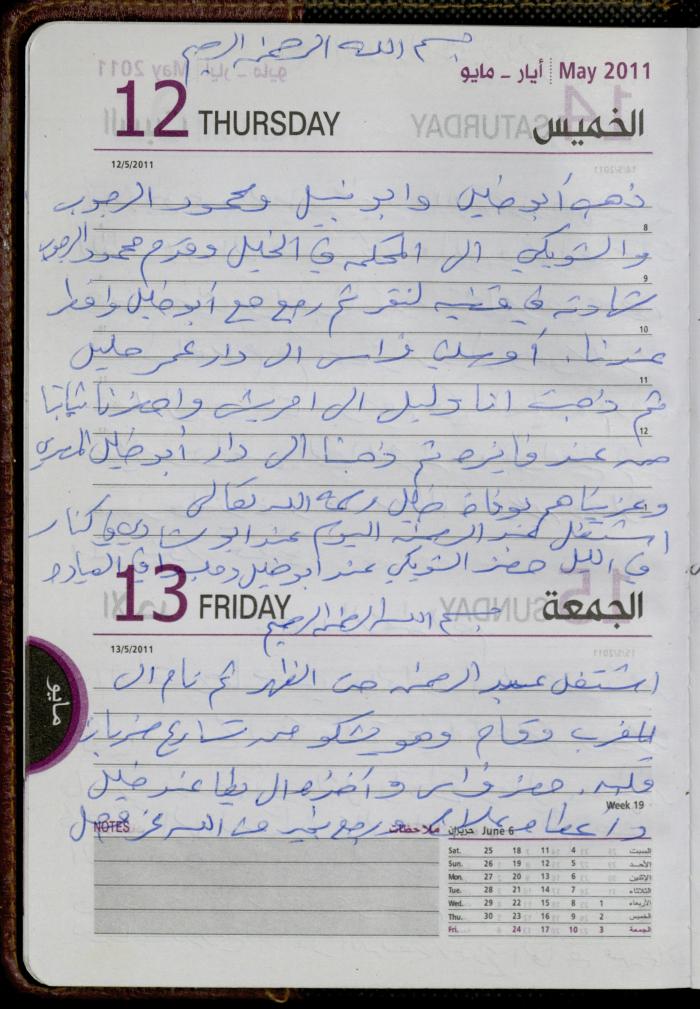 بسم الله الرحمن الرحيم
May 2011 أيار - مايو
12 THURSDAY الخميس
12/5/2011
ذهب أبو خليل وابو نبيل ومحمود الرجوب
8
والشويكي الى المحكمه في الخليل وقدم محمود الرجوب
9
شهادته في قضيه لنقر ثم رجع مع أبو خليل وافطر
10
عندنا. أوصلني فراس الى دار عمر خليل
11
ثم ذهبت انا وليل الى امريش واحضرنا ثيابا
12
من عند فايزه ثم ذهبنا الى دار أبو خليل المصري
وعزيناهم بوفاة خليل رحمه الله تعالى
اشتغل عبد الرحمن اليوم عند ابو شادي في كنار
في الليل حضر الشويكي عند ابو خليل العياده
13 FRIDAY الجمعة
بسم الله الرحمن الرحيم
13/5/2011
اشتغل عبد الرحمن حتى الظهر ثم نام الى
المغرب وقام وهو يشكو من تسارع ضربات
قلبه. حضر فراس وأخذه الى يطا عند خليل
Week 19
واعطاه علاج ورجع بخير من الله عز وجل
NOTES ملاحظات
June 6 حزيران
Sat. 25 18 11 4 السبت
Sun. 26 19 12 5 الأحد
Mon. 27 20 13 6 الإثنين
Tue. 28 21 14 7 الثلاثاء
Wed. 29 22 15 8 1 الأربعاء
Thu. 30 23 16 9 2 الخميس
Fri. 24 17 10 3 الجمعة
مايو